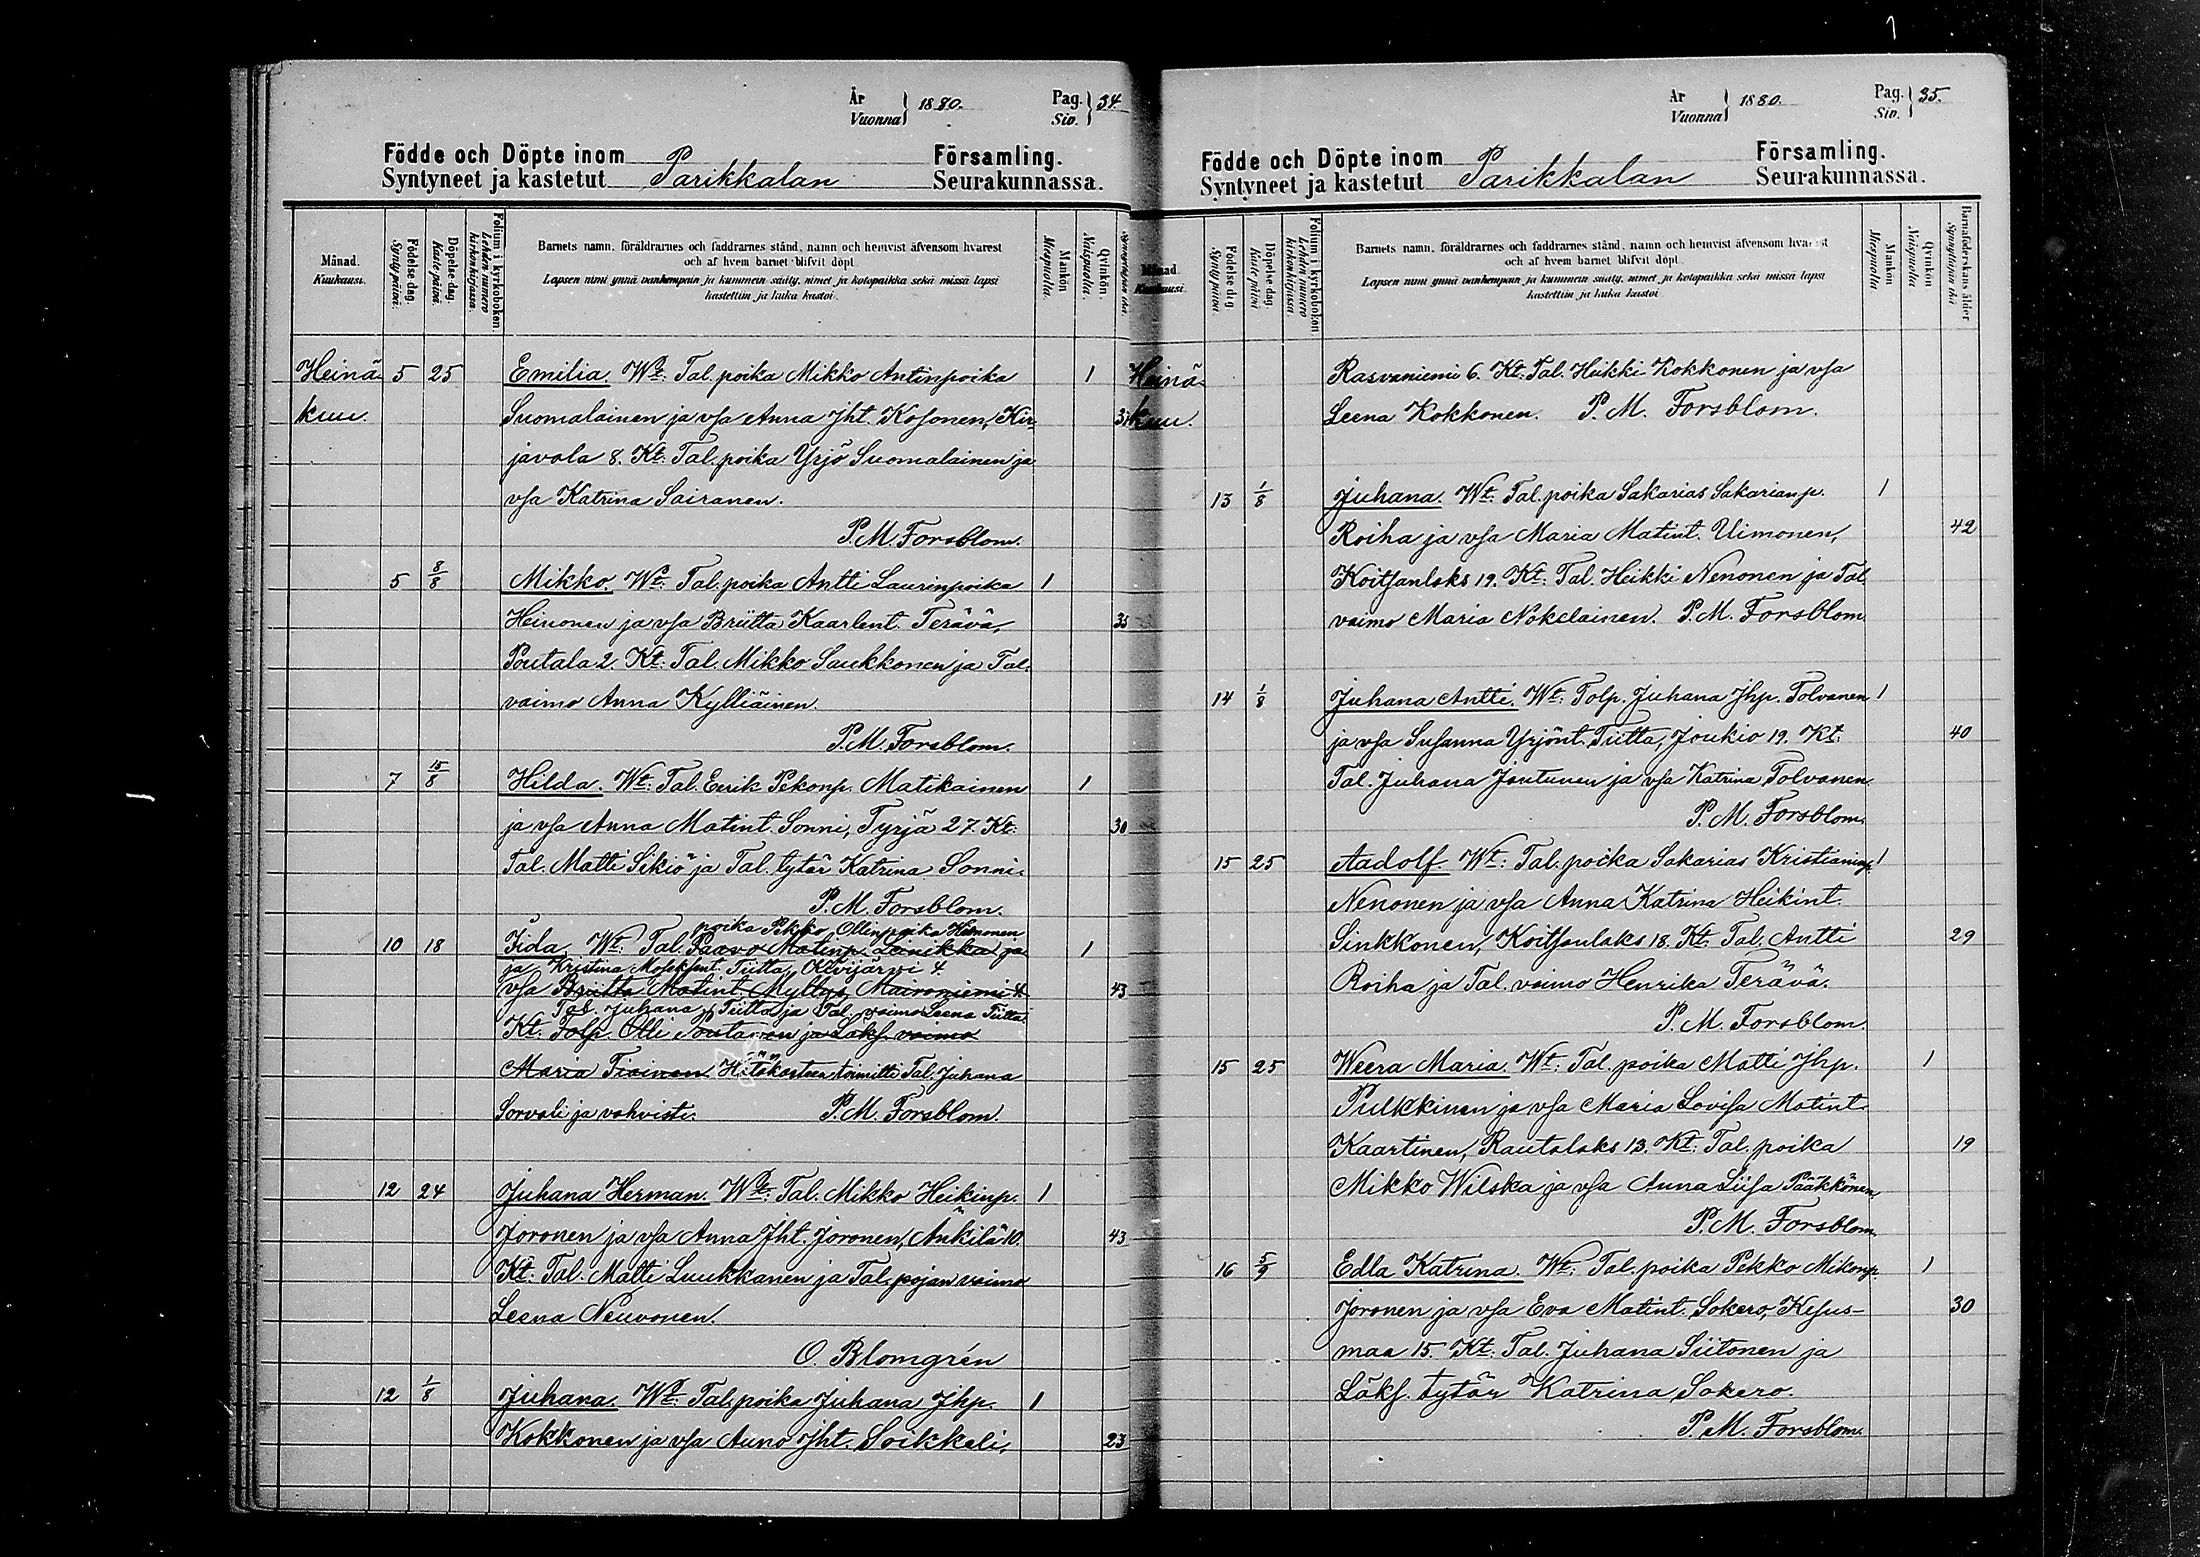 År
Vuonna } 1880. Pag.
Siv. } 34.
Födde och Döpte inom Parikkalan Församling.
Syntyneet ja kastetut Seurakunnassa.
Månad.
Kuukausi.
Födelse dag.
Synty päivä.
Döpelse dag.
Kaste päivä.
Folium i kyrkoboken.
Lehden numero kirkonkirjassa.
Barnets namn, föräldrarnes och faddrarnes stånd, namn och hemvist äfvensom hvarest
och af hvem barnet blifvit döpt.
Lapsen nimi ynnä vanhempain ja kummein sääty, nimet ja kotopaikka sekä missä lapsi
kastettiin ja kuka kastoi.
Mankön
Miespuolia.
Qvinkön.
Naispuolia.
Heinä- 5 25 Emilia. Wt: Tal. poika Mikko Antinpoika 1
kuu. Suomalainen ja vsa Anna Jht. Kosonen, Kir-
javala 8. Kt: Tal. poika Yrjö Suomalainen ja
vsa Katrina Sairanen.
P. M. Forsblom.
5 8/8 Mikko. Wt: Tal. poika Antti Laurinpoika 1
Heinonen ja vsa Briitta Kaarlent. Terävä, 35
Poutala 2. Kt: Tal. Mikko Saukkonen ja Tal.
vaimo Anna Kylliäinen.
P. M. Forsblom.
7 15/8 Hilda. Wt: Tal. Eerik Pekonp. Matikainen 1
ja vsa Anna Matint. Sonni, Tyrjä 27. Kt: 30
Tal. Matti Sikiö ja Tal. tytär Katrina Sonni.
P. M. Forsblom.
poika Pekko Ollinpoika Heinonen
10 18 Iida. Wt: Tal. Paavo Matinp. Lainikka ja 1
ja Kristina Moseksent. Tiitta, Kivijärvi 4
vsa Briitta Matint. Myllys, Maironiemi 4. 43
Tal. Juhana Tiitta ja Tal. vaimo Leena Tiitta.
Kt: Tolp. Olli Poutanen ja Läks. vaimo
Maria Tiainen. Hätäkasteen toimitti Tal. Juhana
Sorvali ja vahvisti. P. M. Forsblom.
12 24 Juhana Herman. Wt: Tal. Mikko Heikinp. 1
Joronen ja vsa Anna Jht. Joronen, Änkilä 10. 43
Kt: Tal. Matti Luukkanen ja Tal. pojan vaimo
Leena Neuvonen.
O. Blomgrén
12 1/8 Juhana. Wt: Tal. poika Juhana Jhp. 1
Kokkonen ja vsa Anna Jht. Soikkeli, 23
År
Vuonna } 1880. Pag.
Siv. } 35.
Födde och Döpte inom Parikkalan Församling.
Syntyneet ja kastetut Seurakunnassa.
Månad.
Kuukausi.
Födelse dag.
Synty päivä.
Döpelse dag.
Kaste päivä.
Folium i kyrkoboken.
Lehden numero kirkonkirjassa.
Barnets namn, föräldrarnes och faddrarnes stånd, namn och hemvist äfvensom hvarest
och af hvem barnet blifvit döpt.
Lapsen nimi ynnä vanhempain ja kummein sääty, nimet ja kotopaikka sekä missä lapsi
kastettiin ja kuka kastoi.
Mankön
Miespuolia
Qvinkön.
Naispuolia.
Barnaföderskans ålder
Synnyttäjän ikä
Heinä- Rasvaniemi 6. Kt: Tal. Heikki Kokkonen ja vsa
kuu. Leena Kokkonen. P. M. Forsblom.
13 1/8 Juhana. Wt: Tal. poika Sakarias Sakarianp. 1
Roiha ja vsa Maria Matint. Uimonen, 42
Koitsanlaks 19. Kt: Tal. Heikki Nenonen ja Tal.
vaimo Maria Nokelainen. P. M. Forsblom
14 1/8 Juhana Antti. Wt: Tolp. Juhana Jhp. Tolvanen 1
ja vsa Susanna Yrjönt. Tiitta, Joukio 19. Kt: 40
Tal. Juhana Jantunen ja vsa Katrina Tolvanen.
P. M. Forsblom.
15 25 Aadolf. Wt: Tal. poika Sakarias Kristianinp. 1
Nenonen ja vsa Anna Katrina Heikint.
Sinkkonen, Koitsanlaks 18. Kt. Tal. Antti 29
Roiha ja Tal. vaimo Henrika Terävä.
P. M. Forsblom.
15 25 Weera Maria. Wt: Tal. poika Matti Jhp. 1
Pulkkinen ja vsa Maria Lovisa Matint.
Kaartinen, Rautalaks 13. Kt: Tal. poika 19
Mikko Wilska ja vsa Anna Liisa Pääkkönen.
P. M. Forsblom.
16 5/9 Edla Katrina. Wt: Tal. poika Pekko Mikonp. 1
Joronen ja vsa Eva Matint. Sokero, Kesus- 30
maa 15. Kt: Tal. Juhana Siitonen ja
Läks. tytär Katrina Sokero.
P. M. Forsblom.